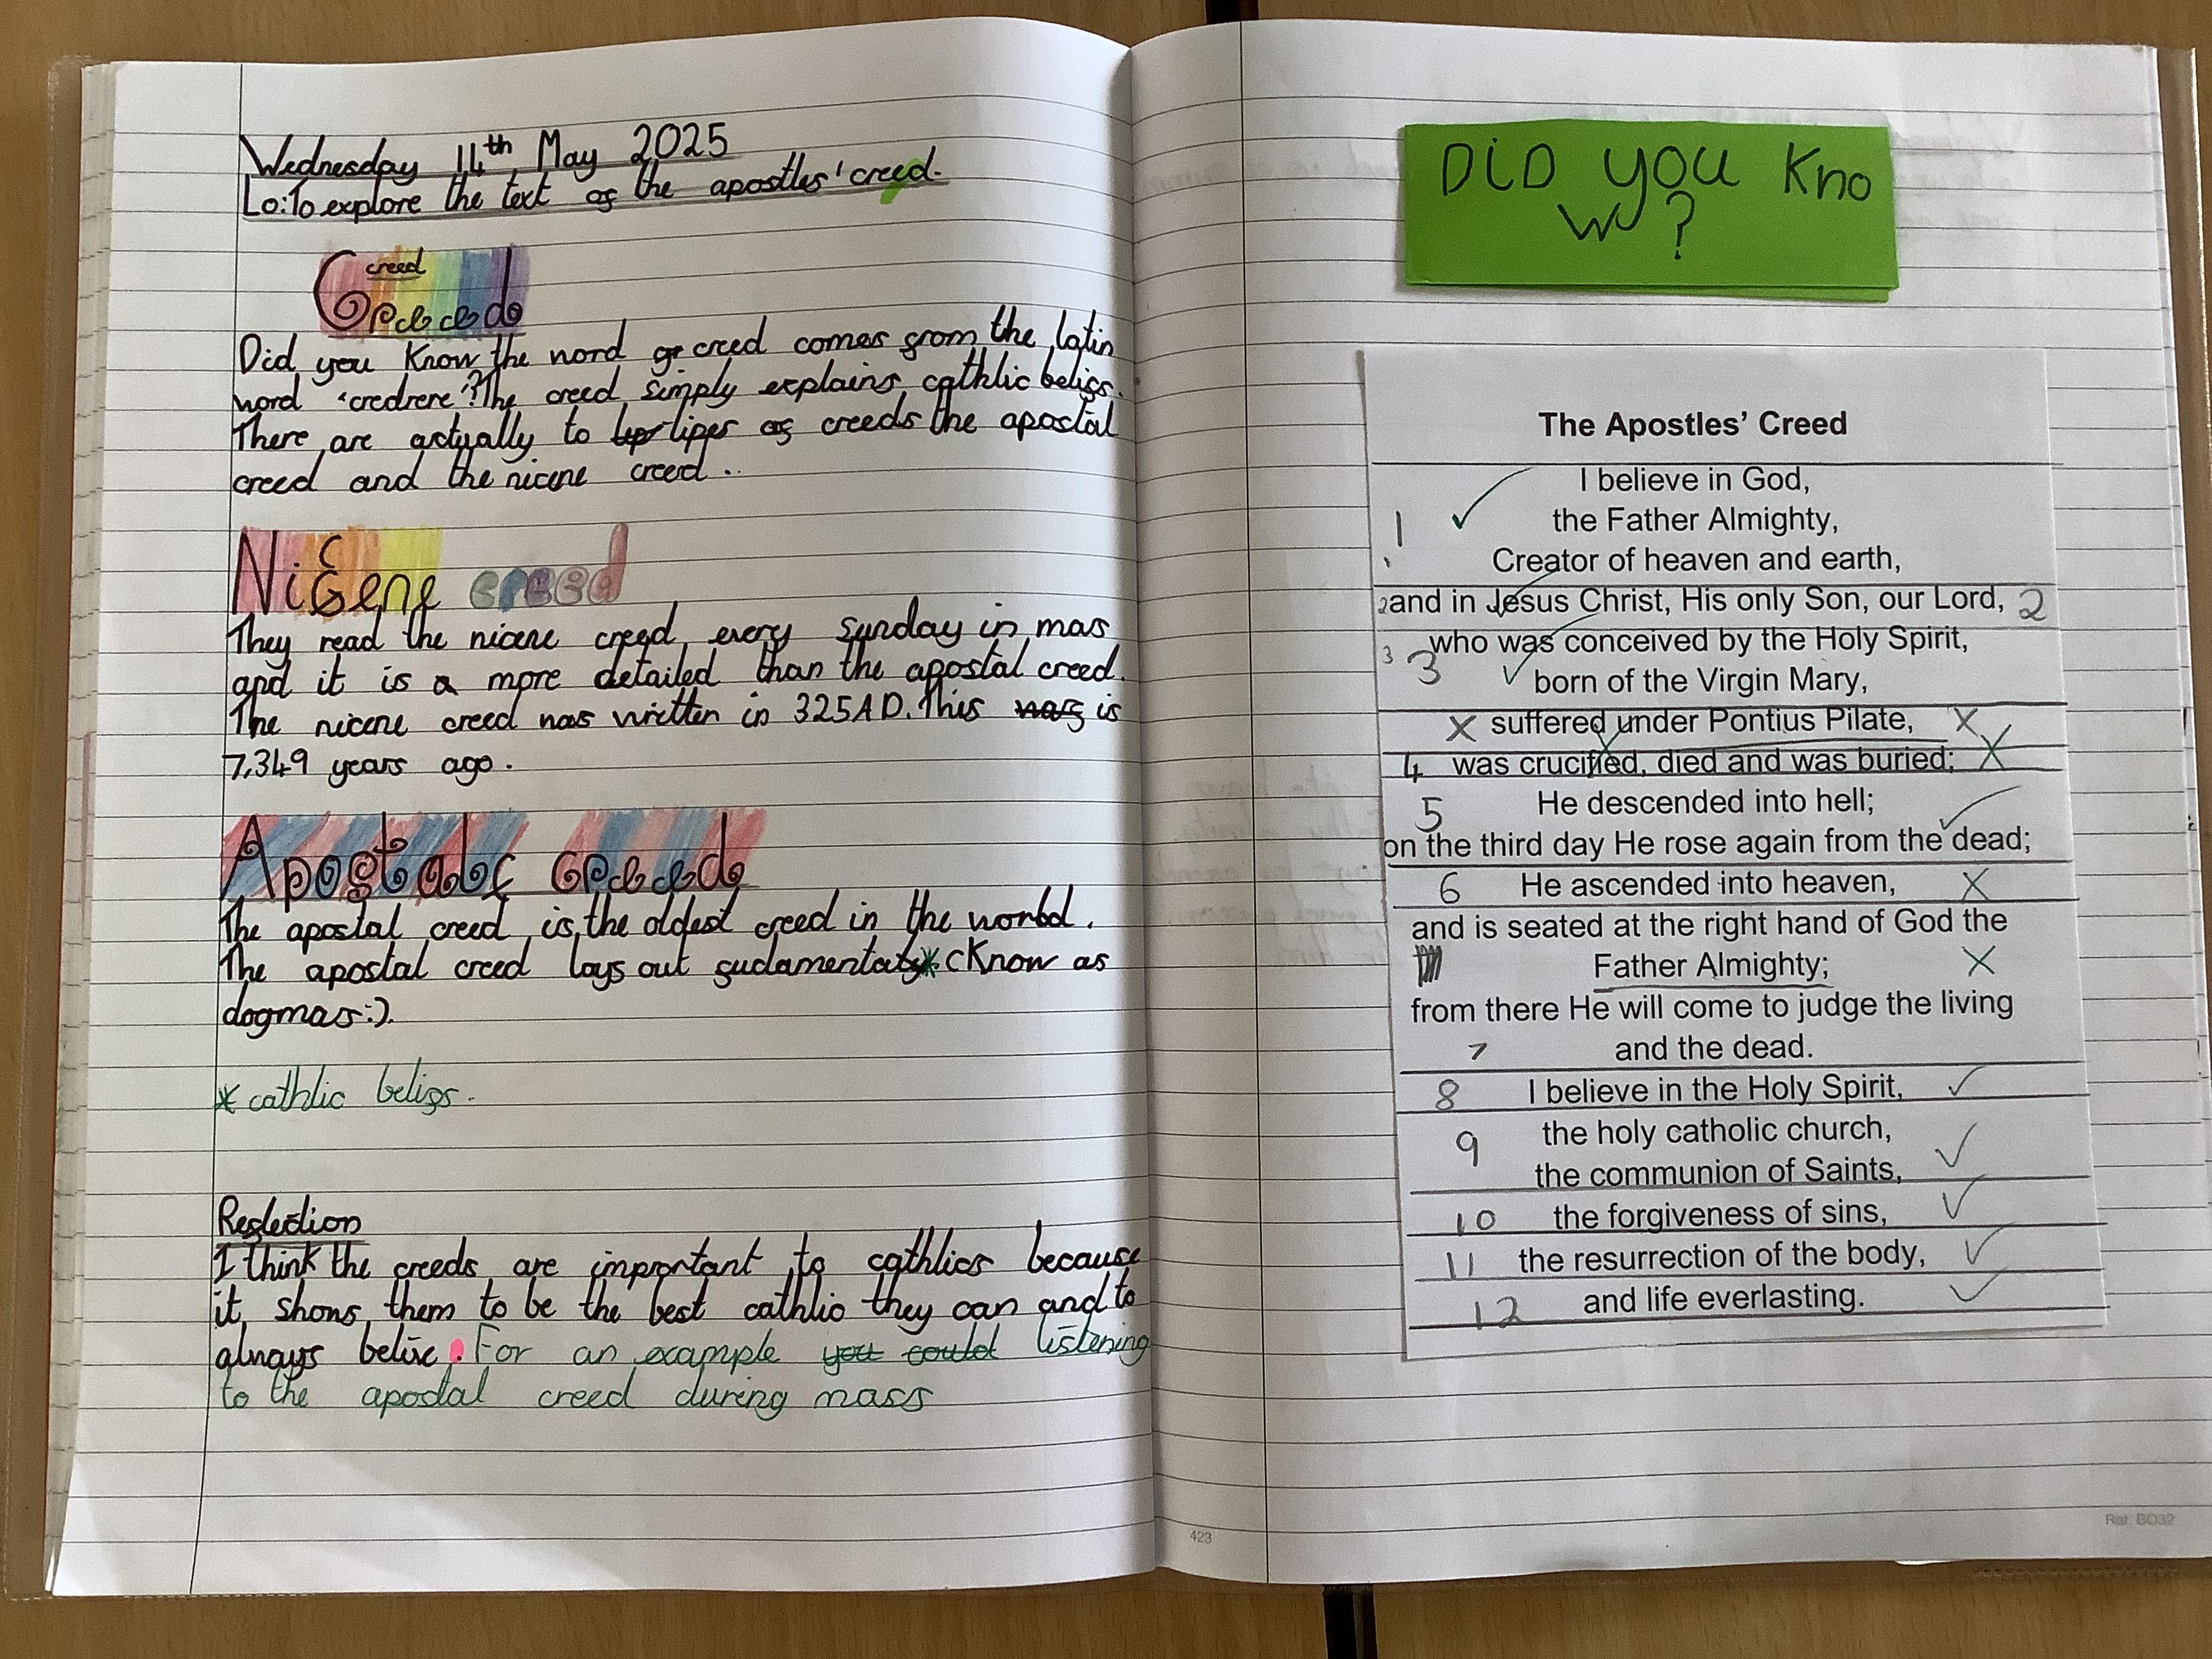 Wednesday 14th May 2025
Lo: To explore the text of the apostles' creed.
creed
Creed
Did you know the word creed comes from the latin
word 'credrere'? The creed simply explains cathlic belifs.
There are actually to tipes of creeds the apostal
creed and the nicene creed..
Nicene creed
They read the nicene creed every sunday in mas
and it is a more detailed than the apostal creed.
The nicene creed was written in 325AD. This was is
7,349 years ago.
creed
The apostal creed is the oldest creed in the world.
The apostal creed lays out * (Know as
dogmas:).
* cathlic belifs.
Reflection
I think the creeds are important to cathlics because
it shows them to be the best cathlic they can and to
always belive. For an example you could listening
to the apostal creed during mass
DiD you Kno
w ?
The Apostles' Creed
I believe in God,
1 the Father Almighty,
Creator of heaven and earth,
2 and in Jesus Christ, His only Son, our Lord, 2
who was conceived by the Holy Spirit,
3 3 born of the Virgin Mary,
X suffered under Pontius Pilate, X
4 was crucified, died and was buried; X
5 He descended into hell;
on the third day He rose again from the dead;
6 He ascended into heaven, X
and is seated at the right hand of God the
Father Almighty; X
from there He will come to judge the living
7 and the dead.
8 I believe in the Holy Spirit,
9 the holy catholic church,
the communion of Saints,
10 the forgiveness of sins,
11 the resurrection of the body,
12 and life everlasting.
423
Ref: BO32